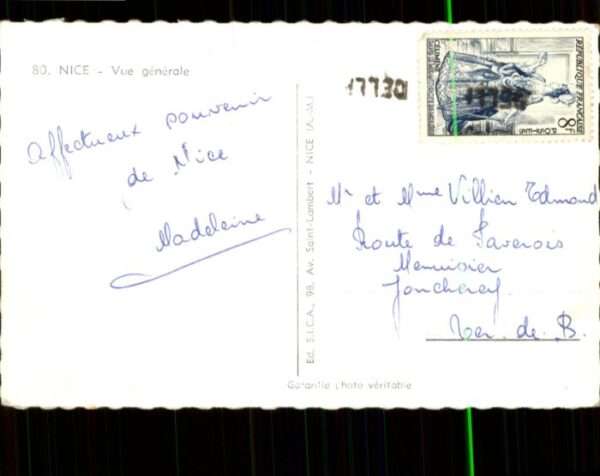 80. NICE - Vue générale
Affectueux souvenir
de Nice
Madeleine
Ed. S.I.C.A., 98, Av. Saint-Lambert - NICE (A.-M.)
DELLY
DELLY
REPUBLIQUE FRANÇAISE
8F
POSTES
Mr et Mme Villien Edmond
Route de Faverois
Menuisier
Joncherey
Ter. de. B.
Garantie photo véritable